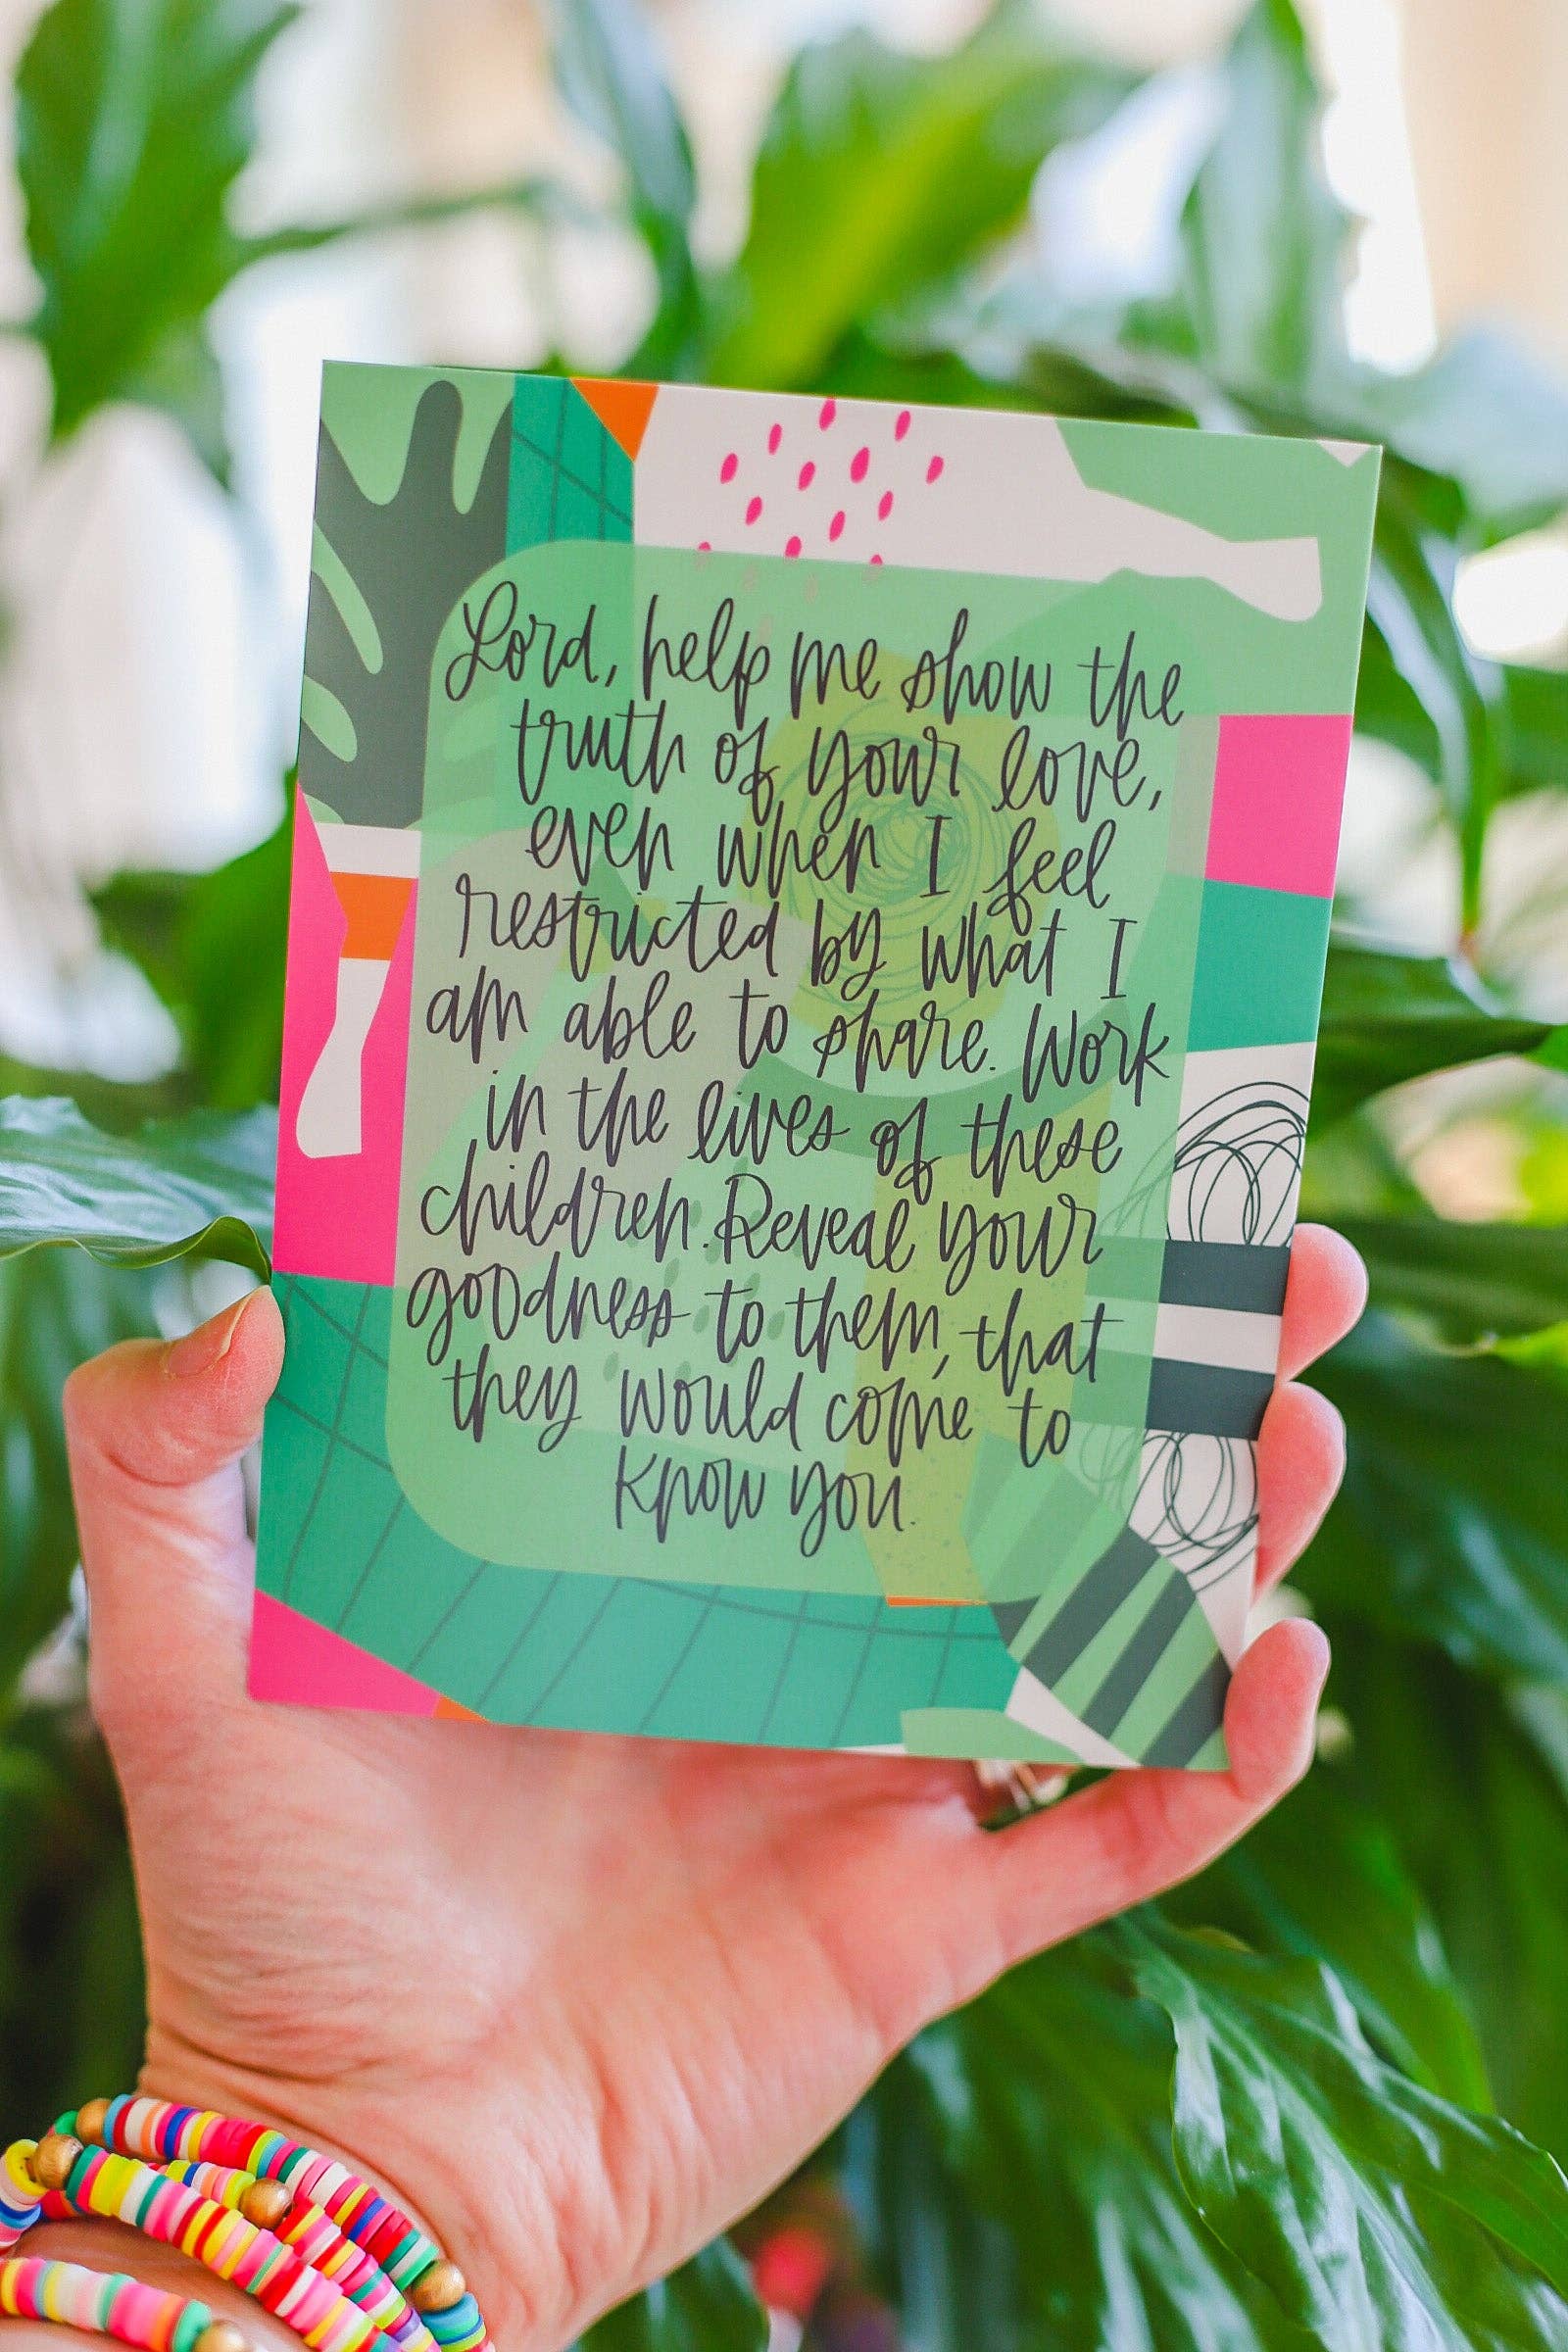 Lord, help me show the
truth of your love,
even when I feel
restricted by what I
am able to share. Work
in the lives of these
children. Reveal your
goodness to them, that
they would come to
know you.